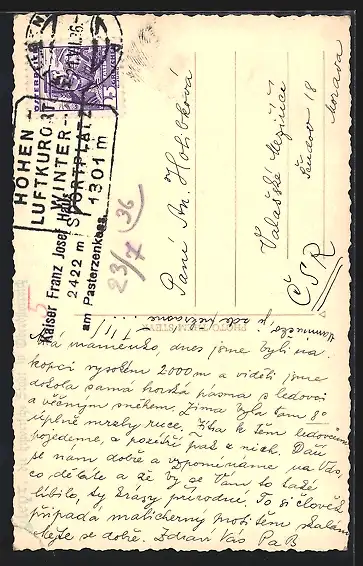 HÖHEN-
LUFTKURORT
WINTER-
SPORTPLATZ
1301 m
Kaiser Franz Josef Haus
2422 m
am Pasterzenkees
ÖSTERREICH
5
23/7 36
Paní An.
Valašské Meziříčí
18
Morava
ČSR
maminko, dnes jsme byli na
kopci vysokém 2000 m a viděli jsme
dokola samá horská pásma s ledovci
a věčným sněhem. Zima byla tam 8°
úplně mrzly ruce. Zítra k těm ledovcům
pojedeme, a pozítří pak z nich. Daří
se nám dobře a vzpomínáme na Vás,
co děláte a že by se Vám to také
líbilo, ty krásy přírodní. To si člověk
připadá malicherný proti těm skalám
Mějte se dobře. Zdraví Vás